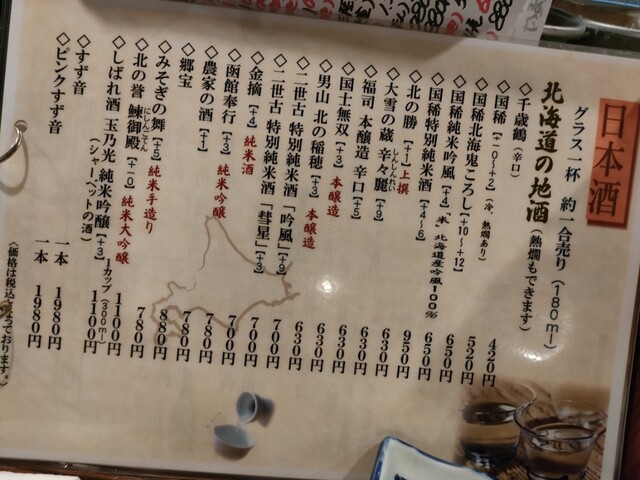 日本酒
グラス一杯 約一合売り(180ml)
北海道の地酒(熱燗もできます)
◇千歳鶴(辛口) 420円
◇国稀[-0〜+2](冷、熱燗あり) 520円
◇国稀北海鬼ころし[+10〜+12] 650円
◇国稀純米吟風[+4]“米”北海道産吟風100% 650円
◇国稀特別純米酒[+4〜6] 950円
◇北の勝[+1]上撰 630円
◇大雪の蔵 辛々麗[+9] 630円
しんしんれい
◇福司 本醸造 辛口[+5] 630円
◇国士無双[+3]本醸造 630円
◇男山 北の稲穂[+3]本醸造 630円
◇二世古 特別純米酒「吟風」[+9] 700円
◇二世古 特別純米酒「彗星」[+9] 700円
◇金摘[+4]純米酒 700円
◇函館奉行[+3]純米吟醸 780円
◇農家の酒[+1] 780円
◇郷宝 880円
◇みそぎの舞[+5]純米手造り 780円
◇北の誉 鰊御殿[+-0]純米大吟醸 1100円
にしんごてん
◇しばれ酒 玉乃光 純米吟醸[+3]1カップ(300ml) 1100円
(シャーベットの酒)
◇すず音 一本 1980円
◇ピンクすず音 一本 1980円
(価格は税込みとなっております。)